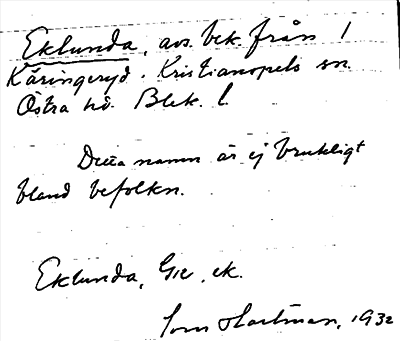 Eklunda, avs. bek. från 1
Käringeryd. Kristianopels sn.
Östra hd. Blek. l.
Detta namn är ej brukligt
bland befolkn.
Eklunda, ek.
Hartman, 1932